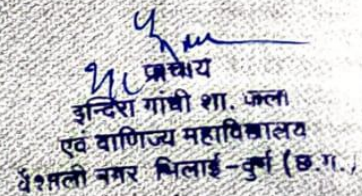 प्राचार्य
इन्दिरा गांधी शा. कला
एवं वाणिज्य महाविद्यालय
वैशाली नगर भिलाई - दुर्ग (छ.ग.)